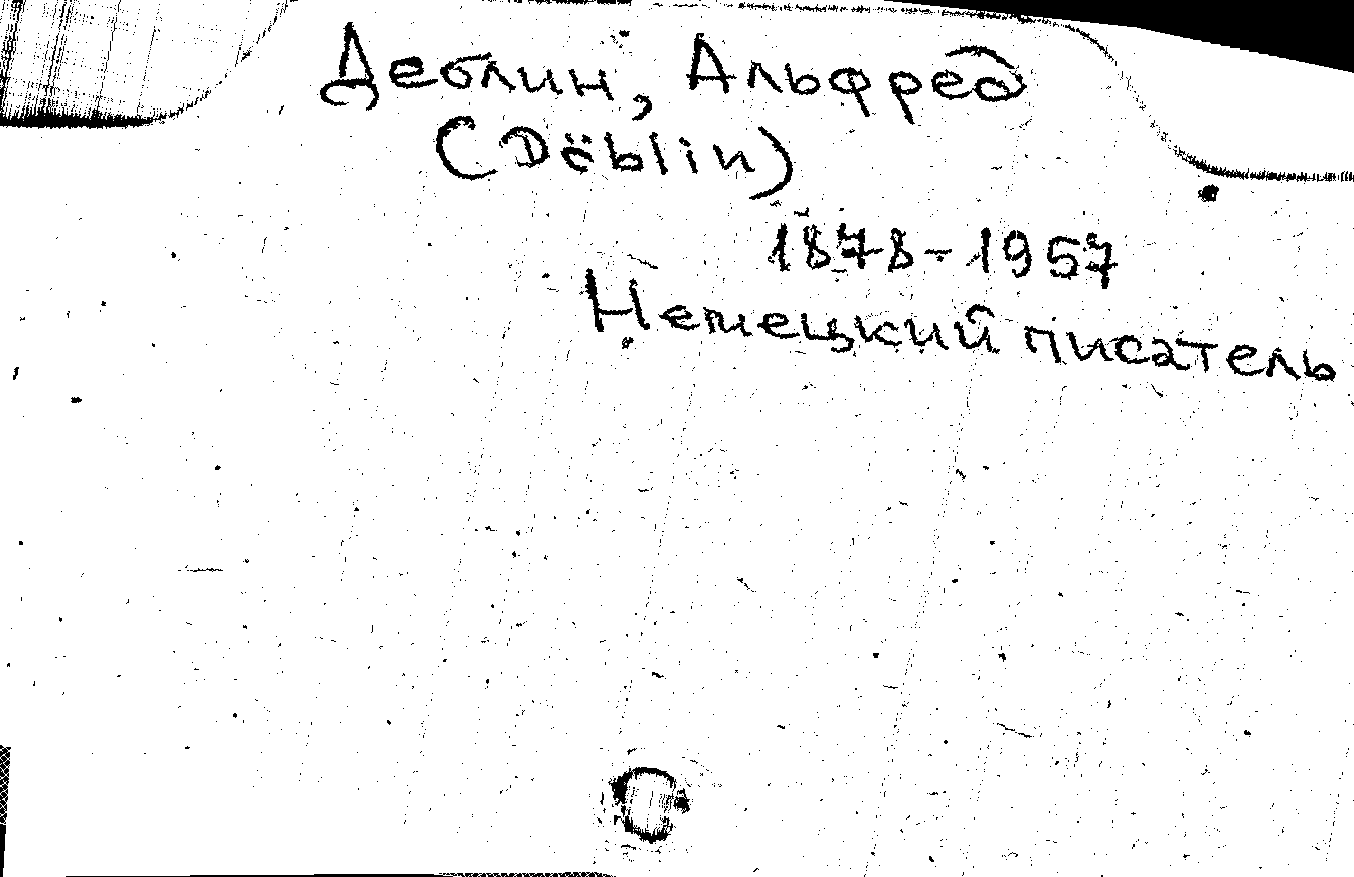 Деблин, Альфред
(Döblin)
1878-1957
Немецкий писатель